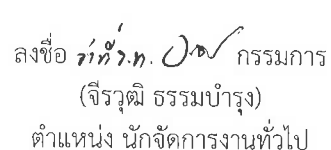 ลงชื่อ ว่าที่ร.ท. กรรมการ
(จีรวุฒิ ธรรมบำรุง)
ตำแหน่ง นักจัดการงานทั่วไป